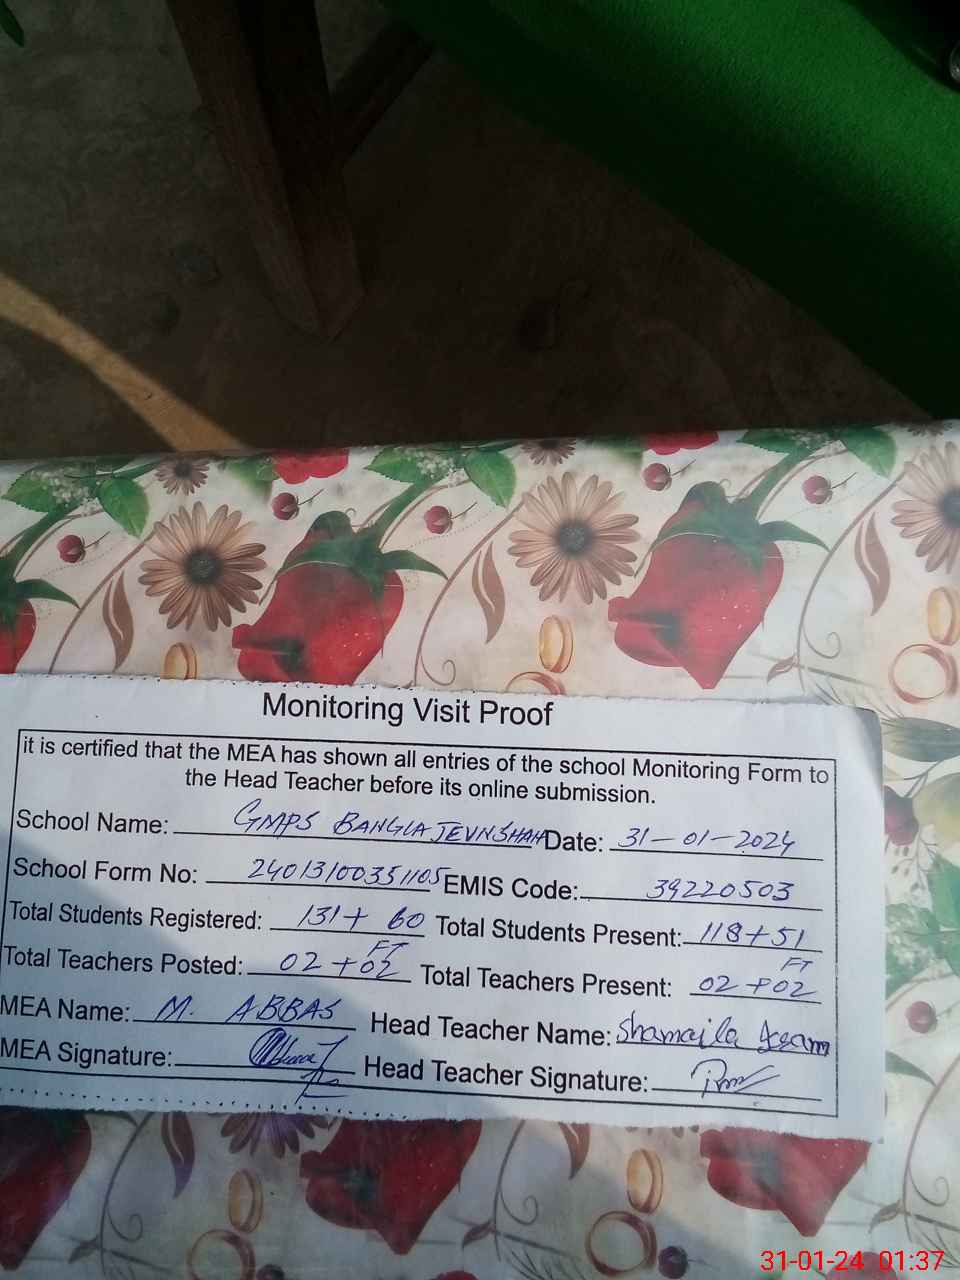 Monitoring Visit Proof
it is certified that the MEA has shown all entries of the school Monitoring Form to
the Head Teacher before its online submission.
School Name: GMPS BANGLA JEVNSHAH Date: 31-01-2024
School Form No: 24013100351105 EMIS Code: 39220503
Total Students Registered: 131+ 60 Total Students Present: 118+51
FT FT
Total Teachers Posted: 02 +02 Total Teachers Present: 02 +02
MEA Name: M. ABBAS Head Teacher Name: Shamaila
MEA Signature: Head Teacher Signature:
31-01-24 01:37